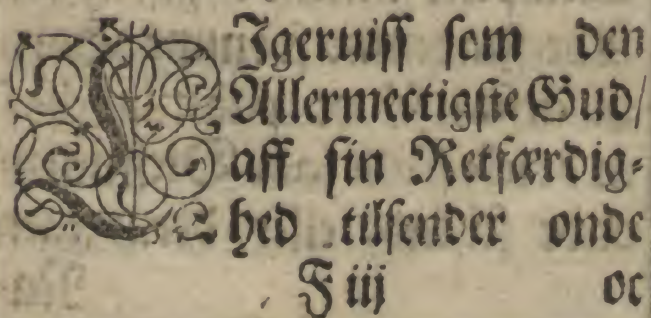 LIgeruiss som den
Allermectigste Gud/
aff sin Retfærdig-
hed tilsender onde
F iij oc